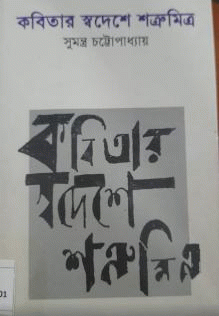 কবিতার স্বদেশে শত্রুমিত্র
সুমন্ত্র চট্টোপাধ্যায়
কবিতার
স্বদেশে
শত্রুমিত্র
01